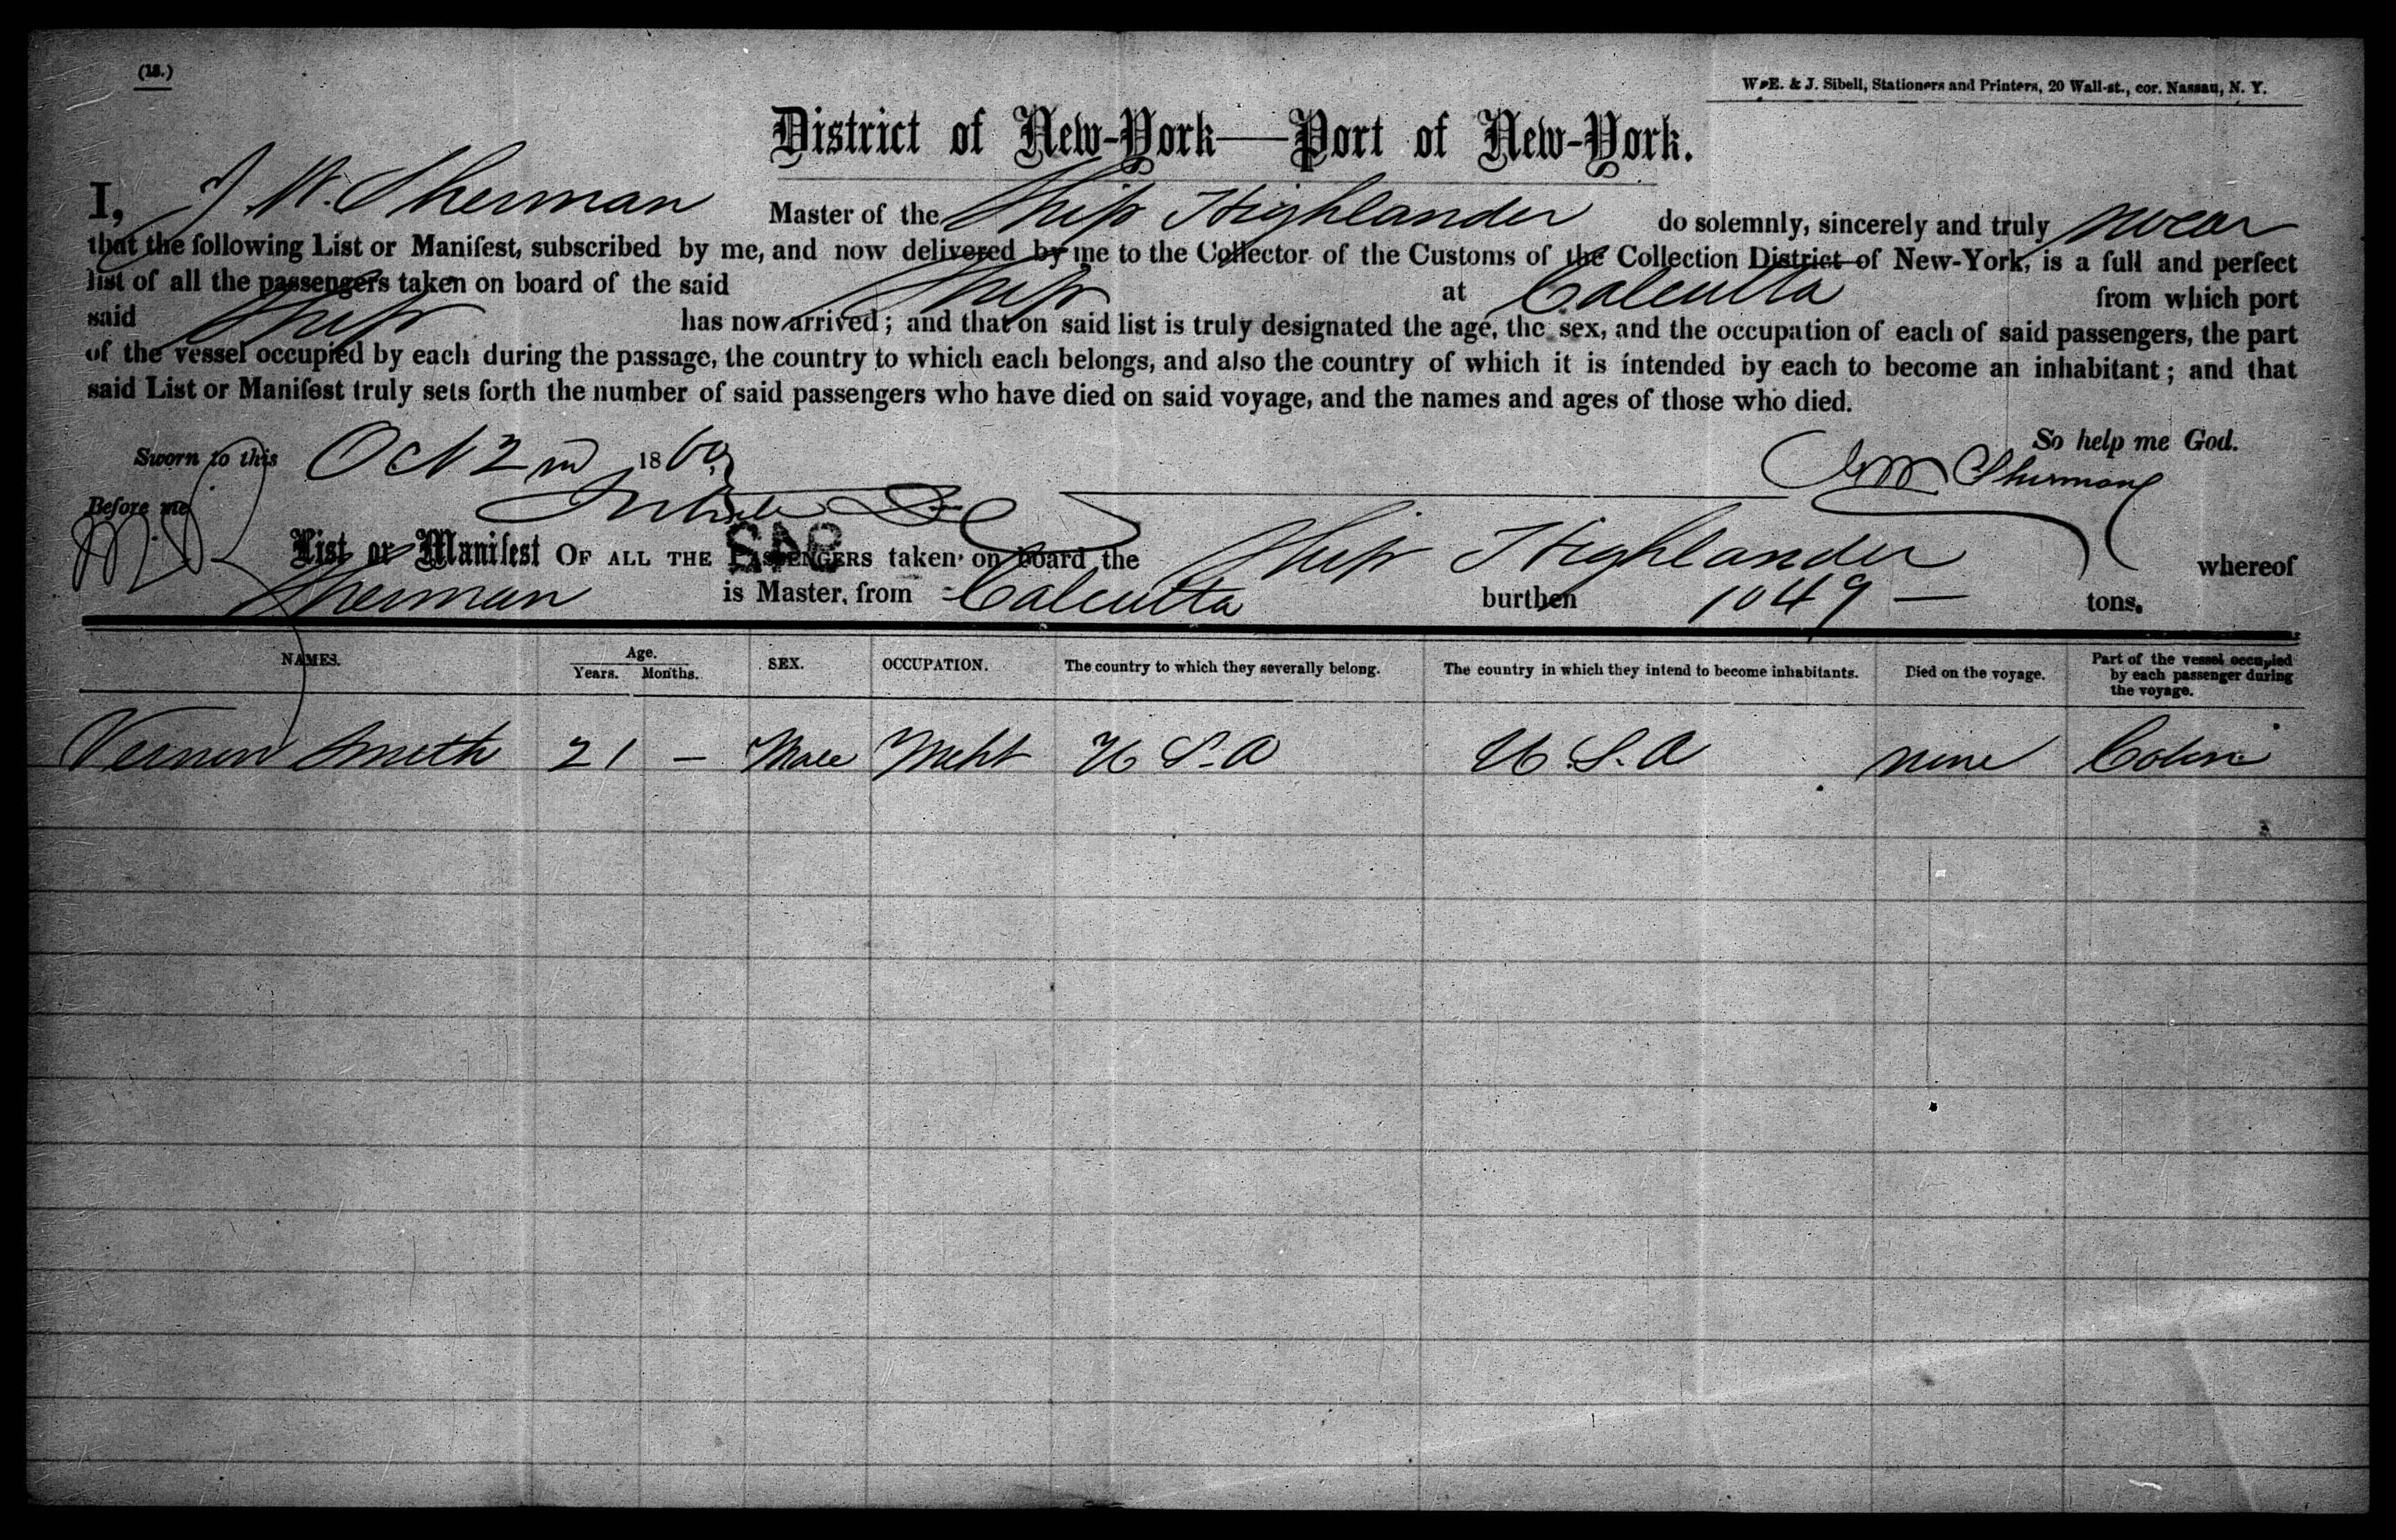 (18.)
Wm E. & J. Sibell, Stationers and Printers, 20 Wall-st., cor. Nassau, N. Y.
District of New-York—Port of New-York.
I, J. W. Sherman Master of the Ship Highlander do solemnly, sincerely and truly swear
that the following List or Manifest, subscribed by me, and now delivered by me to the Collector of the Customs of the Collection District of New-York, is a full and perfect
list of all the passengers taken on board of the said Ship at Calcutta from which port
said Ship has now arrived; and that on said list is truly designated the age, the sex, and the occupation of each of said passengers, the part
of the vessel occupied by each during the passage, the country to which each belongs, and also the country of which it is intended by each to become an inhabitant; and that
said List or Manifest truly sets forth the number of said passengers who have died on said voyage, and the names and ages of those who died.
So help me God.
Sworn to this Oct 2nd 1860
Sherman
Before me
List or Manifest OF ALL THE PASSENGERS taken on board the Ship Highlander whereof
Sherman is Master, from Calcutta burthen 1049 — tons.
NAMES. Age. Years. Months. SEX. OCCUPATION. The country to which they severally belong. The country in which they intend to become inhabitants. Died on the voyage. Part of the vessel occupied by each passenger during the voyage.
Vernon Smith 21 — Male Mcht U S. A U. S. A none Cabin